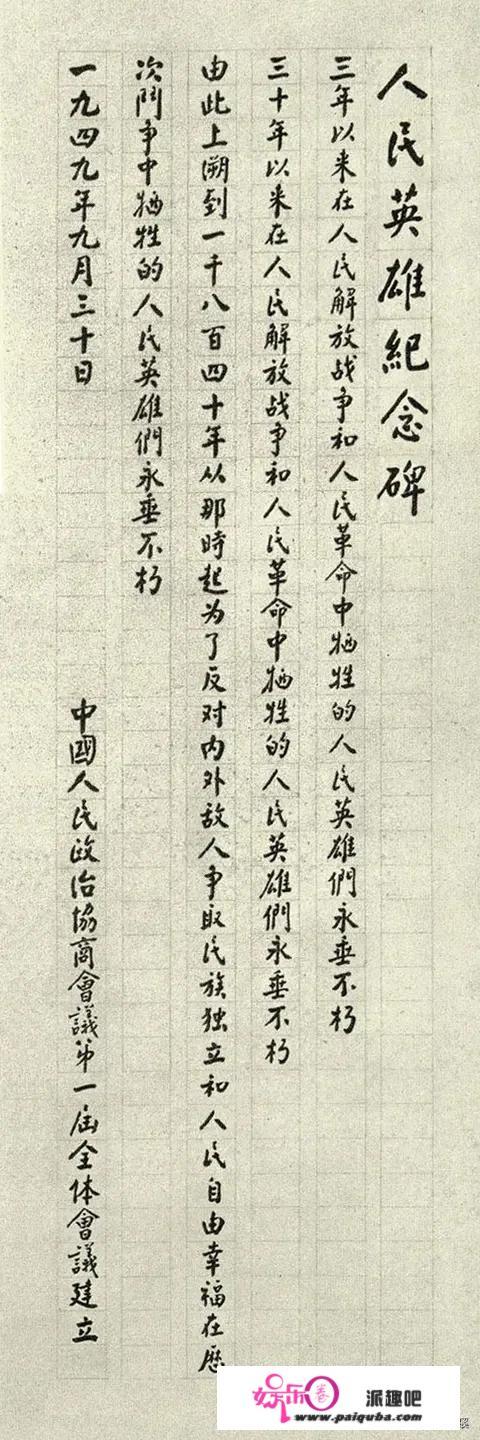 人民英雄紀念碑
三年以来在人民解放战争和人民革命中牺牲的人民英雄們永垂不朽
三十年以来在人民解放战争和人民革命中牺牲的人民英雄們永垂不朽
由此上溯到一千八百四十年从那時起为了反对内外敌人争取民族独立和人民自由幸福在歷
次鬥争中牺牲的人民英雄們永垂不朽
一九四九年九月三十日
中國人民政治協商會議第一届全体會議建立
娱乐圈
派趣吧
www.paiquba.com